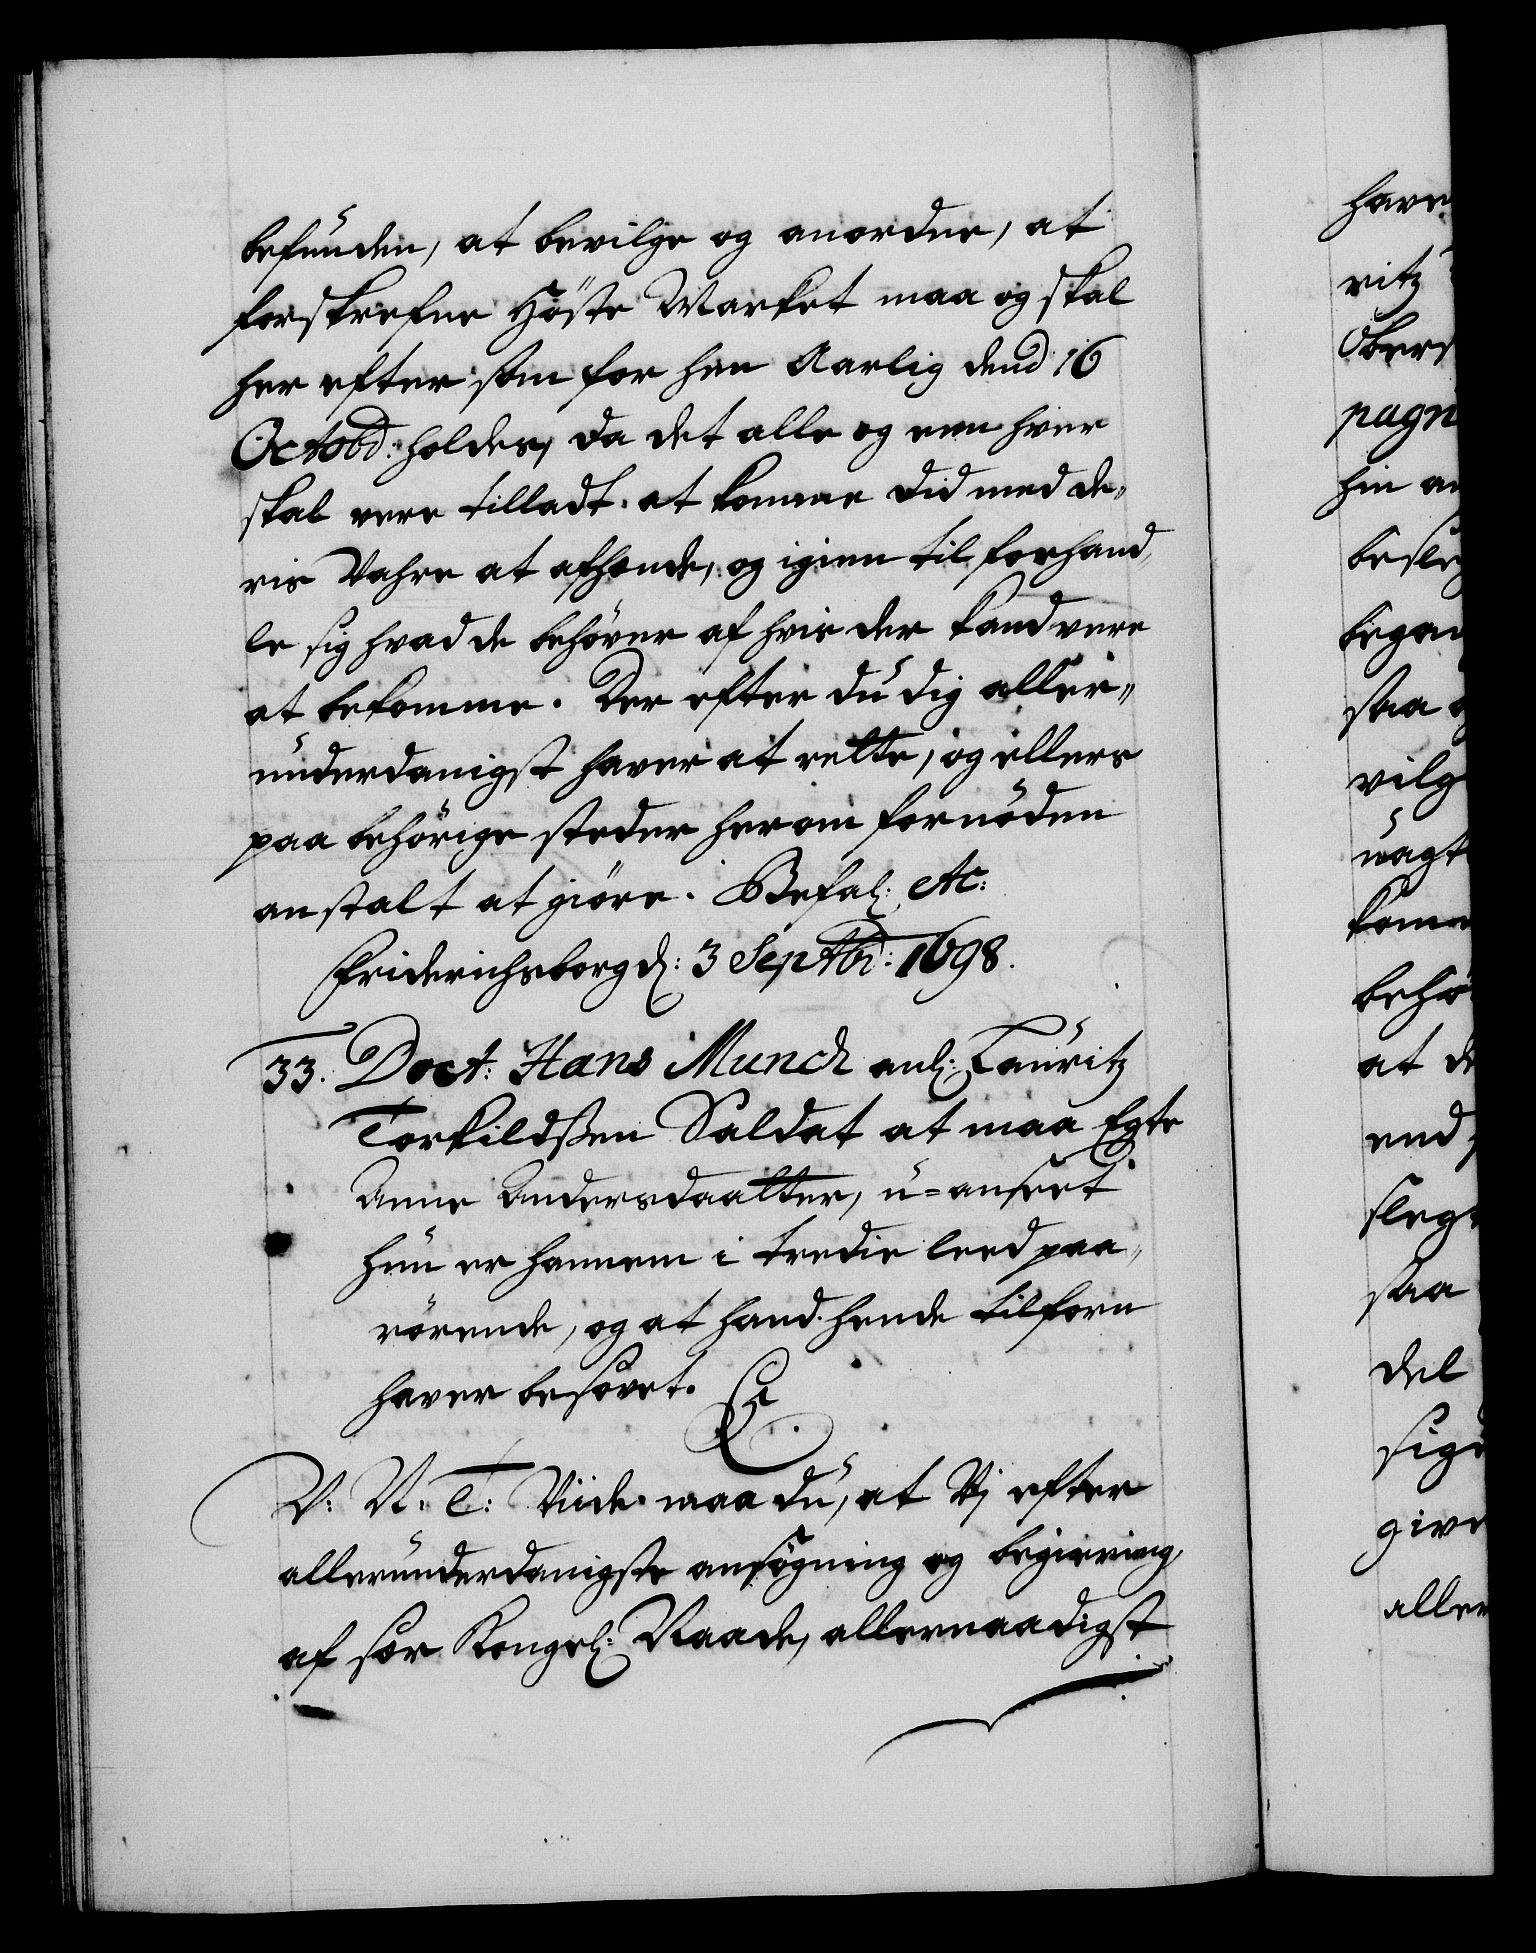 befunden, at bevilge og anordne, at
forskrefne Höste Market maa og skal
her efter som for hen Aarlig dend 16
Octobr: holdes, da det alle og een hver
skal vere tilladt at komme did med de„
ris Vahre at afhende, og igien til forhand„
le sig hvad de behöver af hvis der kand vere
at bekomme. Der efter du dig aller„
underdanigst haver at rette, og ellers
paa behörige steder herom fornöden
anstalt at giöre. Befal: etc:
Friderichsborg d: 3 Septbr: 1698.
33. Doct: Hans Munch anl: Lauritz
Torkildßen Saldat at maa Egte
Anne Andersdaatter, u=anseet
hun er hannem i tredie leed paa„
rörende, og at hand hende tilforn
haver besovet.
V: N: T: Viide maa du, at Vj efter
allerunderdanigste ansögning og begiering,
af sær Kongel: Naade, allernaadigst
have
ritz
Obers
pagn
hin an
besleg
began
staa
vilg
uagt
komm
behö
at de
end
slegt
saa
del
sige
give
aller